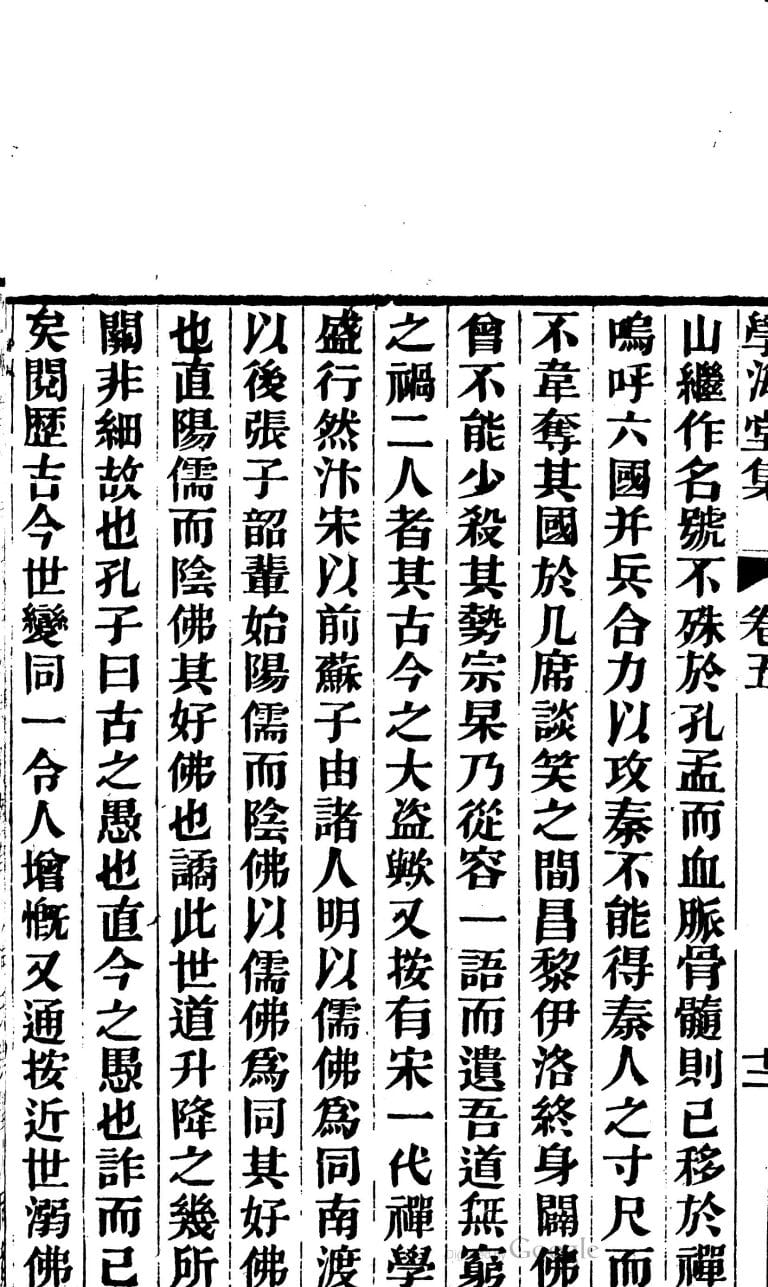 學海堂集 卷五 十二
山繼作名號不殊於孔孟而血脈骨髓則已移於禪
嗚呼六國并兵合力以攻秦不能得秦人之寸尺而
不韋奪其國於几席談笑之間昌黎伊洛終身闢佛
曾不能少殺其勢宗杲乃從容一語而遺吾道無窮
之禍二人者其古今之大盜歟又按有宋一代禪學
盛行然汴宋以前蘇子由諸人明以儒佛爲同南渡
以後張子韶輩始陽儒而陰佛以儒佛爲同其好佛
也直陽儒而陰佛其好佛也譎此世道升降之幾所
關非細故也孔子曰古之愚也直今之愚也詐而已
矣閱歷古今世變同一令人增慨又通按近世溺佛
Google